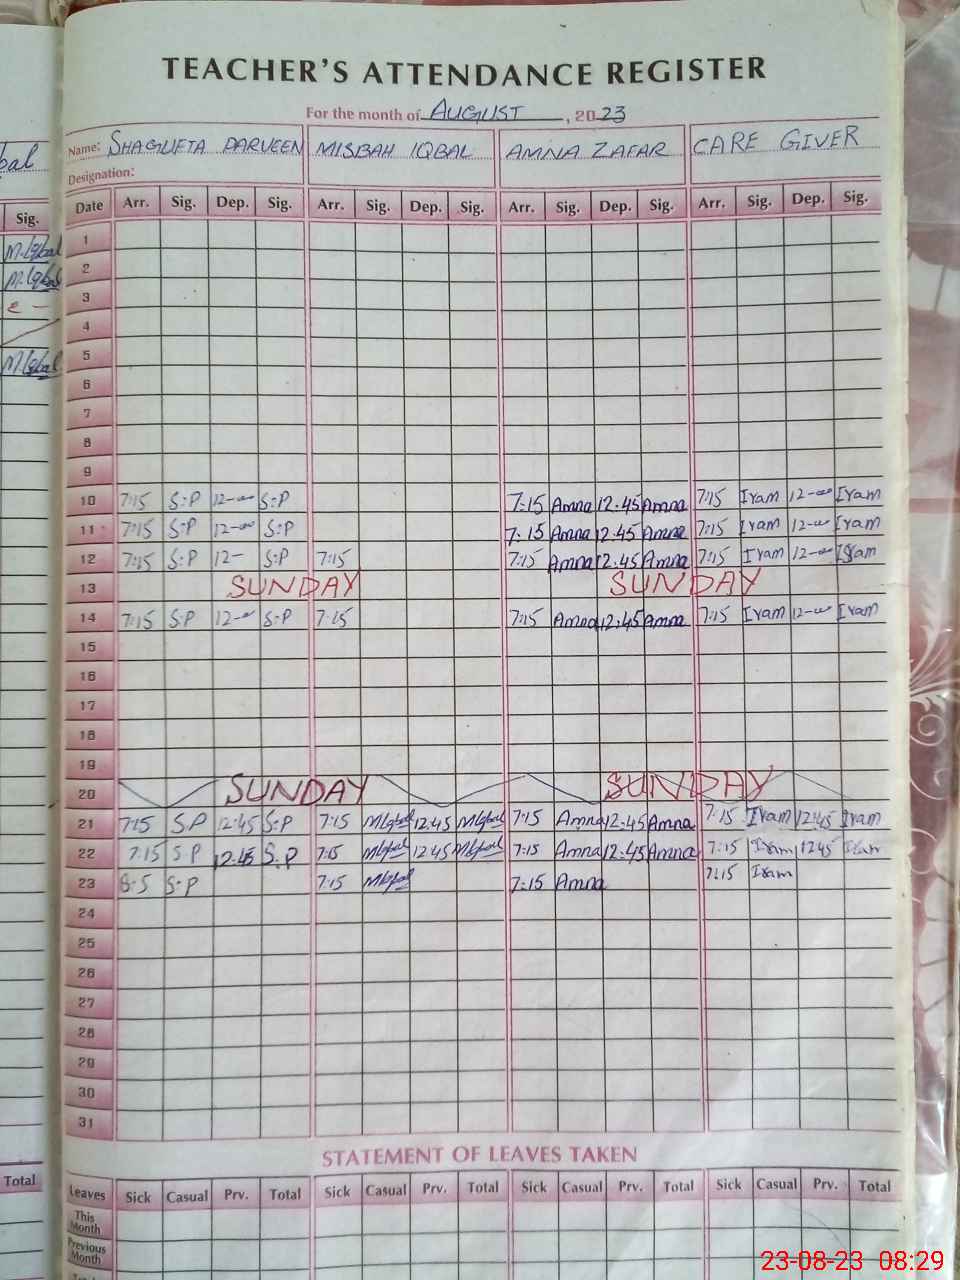 TEACHER'S ATTENDANCE REGISTER
For the month of AUGUST, 2023
Name: SHAGUFTA PARVEEN MISBAH IQBAL AMNA ZAFAR CARE GIVER
Designation:
Sig. Date Arr. Sig. Dep. Sig. Arr. Sig. Dep. Sig. Arr. Sig. Dep. Sig. Arr. Sig. Dep. Sig.
M.Iqbal 1
M.Iqbal 2
3
4
M.Iqbal 5
6
7
8
9
10 7:15 S:P 12-00 S:P 7:15 Amna 12.45 Amna 7:15 Iram 12-00 Iram
11 7:15 S:P 12-00 S:P 7:15 Amna 12.45 Amna 7:15 Iram 12-00 Iram
12 7:15 S:P 12- S:P 7:15 7:15 Amna 12.45 Amna 7:15 Iram 12-00 Iram
13 SUNDAY SUNDAY
14 7:15 S:P 12-00 S:P 7:15 7:15 Amna 12:45 Amna 7:15 Iram 12-00 Iram
15
16
17
18
19
20 SUNDAY SUNDAY
21 7:15 S P 12:45 S:P 7:15 MIqbal 12:45 MIqbal 7:15 Amna 12:45 Amna 7:15 Iram 12:45 Iram
22 7:15 S P 12:45 S:P 7:15 MIqbal 12:45 MIqbal 7:15 Amna 12:45 Amna 7:15 Iram 12:45 Iram
23 8:5 S:P 7:15 MIqbal 7:15 Amna 7:15 Iram
24
25
26
27
28
29
30
31
STATEMENT OF LEAVES TAKEN
Total Leaves Sick Casual Prv. Total Sick Casual Prv. Total Sick Casual Prv. Total Sick Casual Prv. Total
This Month
Previous Month
23-08-23 08:29